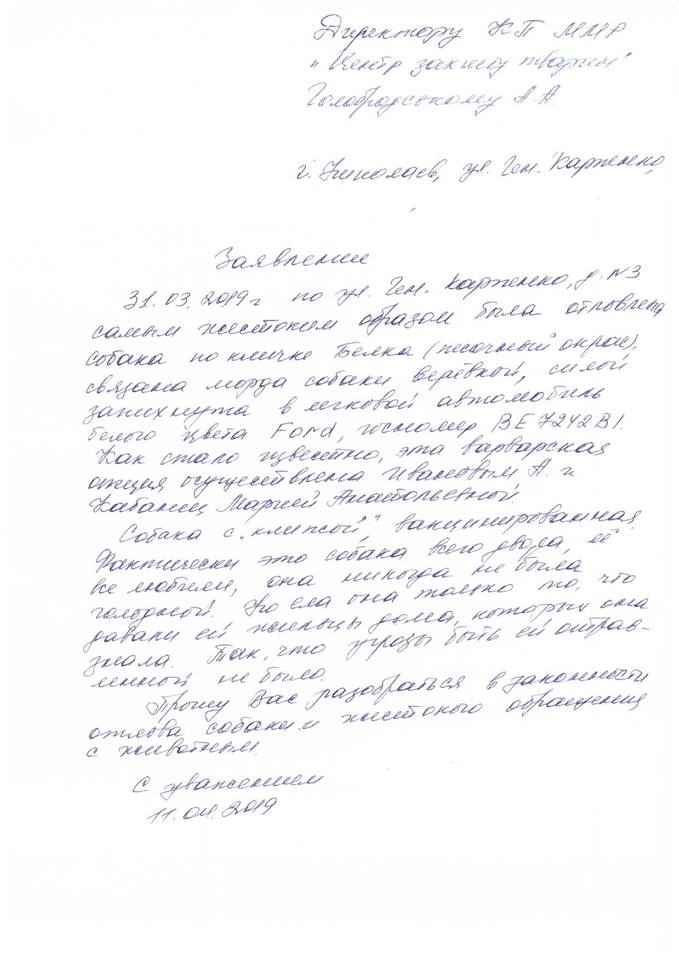 Директору КП ММР
"Центр захисту тварин"
Голобродському А.А.
г. Николаев, ул. Ген. Карпенко,
Заявление
31.03.2019г по ул. Ген. Карпенко, д. №3
самым жестоким образом была отловлена
собака по кличке Белка (песочный окрас),
связана морда собаки верёвкой, силой
запихнута в легковой автомобиль
белого цвета Ford, госномер ВЕ7242ВІ.
Как стало известно, эта варварская
акция осуществлена Ивановым А. и
Кабанец Марией Анатольевной
Собака с "клипсой", вакцинированная.
Фактически это собака всего двора, её
все любили, она никогда не была
голодной. Но ела она только то, что
давали ей жильцы дома, которых она
знала. Так, что угрозы быть ей отрав-
ленной не было.
Прошу Вас разобраться в законности
отлова собаки и жестокого обращения
с животным.
С уважением
11.04.2019